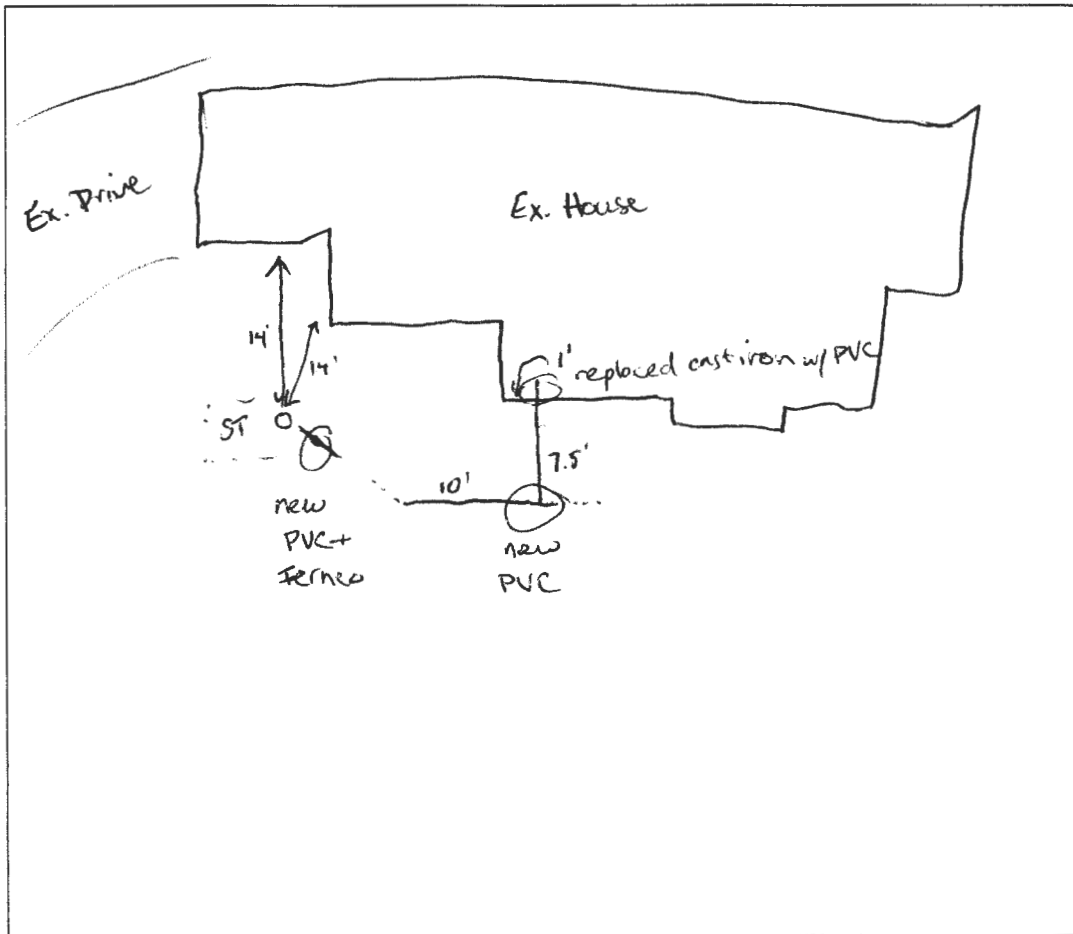 Ex. Drive
Ex. House
14'
14'
1'
replaced cast iron w/ PVC
ST
7.5'
10'
new
PVC+
Fernco
new
PVC